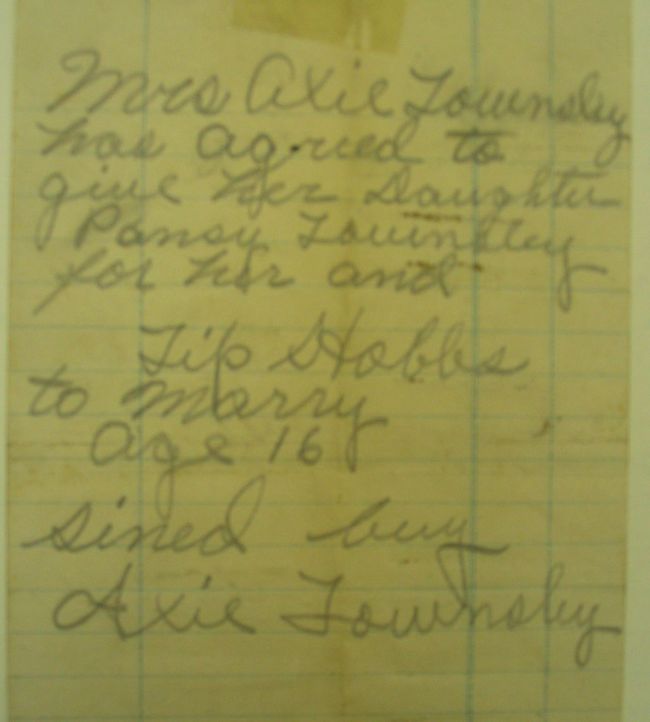 Mrs Axie Townsley
has agried to
give her Daughter
Pansy Townsley
for her and
Tip Hobbs
to marry
Age 16
sined buy
Axie Townsley